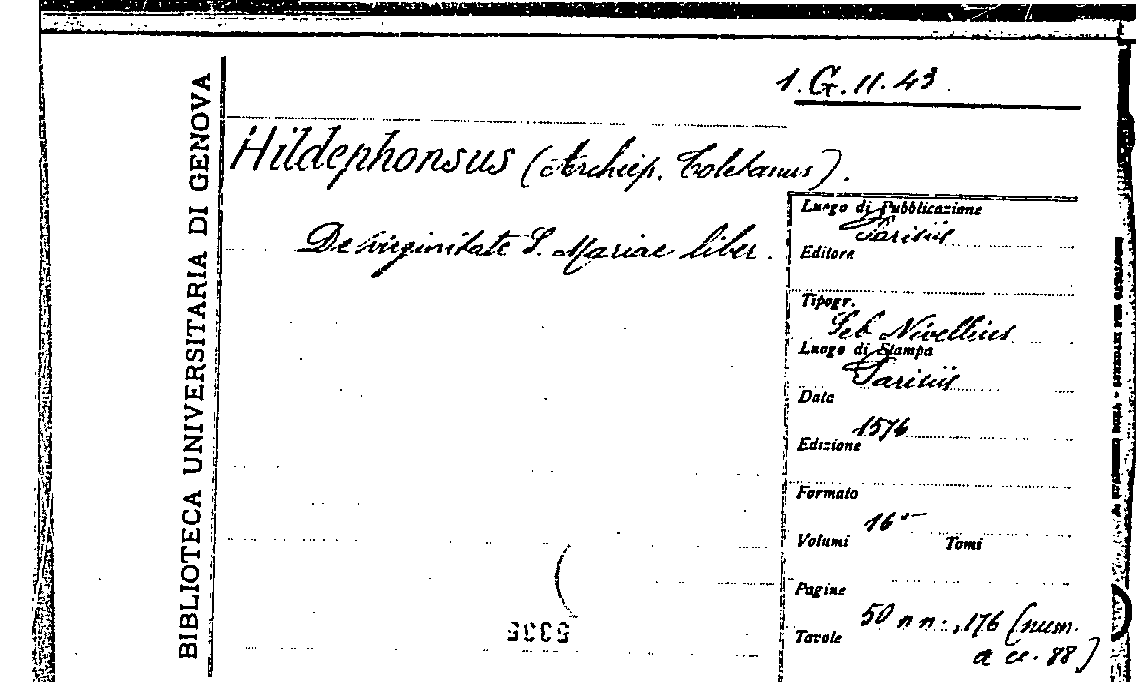 1.G.11.43
BIBLIOTECA UNIVERSITARIA DI GENOVA
Hildephonsus (Archiep. Toletanus).
De virginitate S. Mariae liber.
Luogo di Pubblicazione
Parisiis
Editore
Tipogr.
Seb Nivellius
Luogo di Stampa
Parisiis
Data
1576
Edizione
Formato
16°
Volumi Tomi
Pagine
50 n n., 176 (num.
Tavole
a cc. 88)